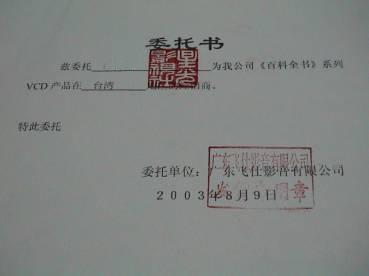 委托书
兹委托 为我公司《百科全书》系列
VCD 产品在 台湾 销商。
特此委托
广东飞仕影音有限公司
委托单位：广东飞仕影音有限公司
用章
2003年8月9日